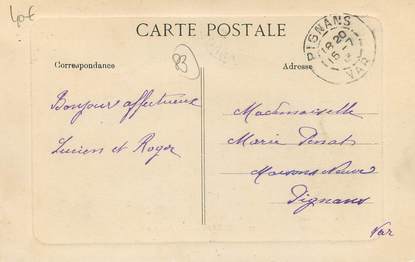 40€
CARTE POSTALE
PIGNANS
18 20
15-7
VAR
83
Correspondance
Adresse
Bonjour affectueux
Lucien et Roger
Mademoiselle
Marie
Maisons Neuve
Pignans
Var